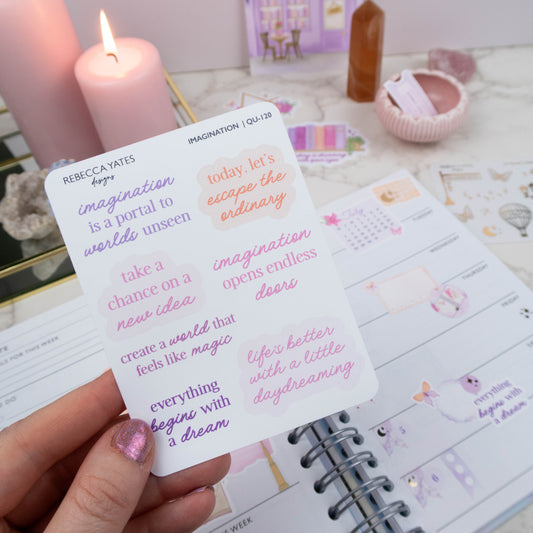 IMAGINATION | QU-120
REBECCA YATES
designs
imagination
is a portal to
worlds unseen
today, let's
escape the
ordinary
take a
chance on a
new idea
imagination
opens endless
doors
create a world that
feels like magic
life's better
with a little
daydreaming
everything
begins with
a dream
July
TUESDAY
WEDNESDAY
THURSDAY
FRIDAY
everything
begins with
a dream
S FOR THIS WEEK
DO
WEEK